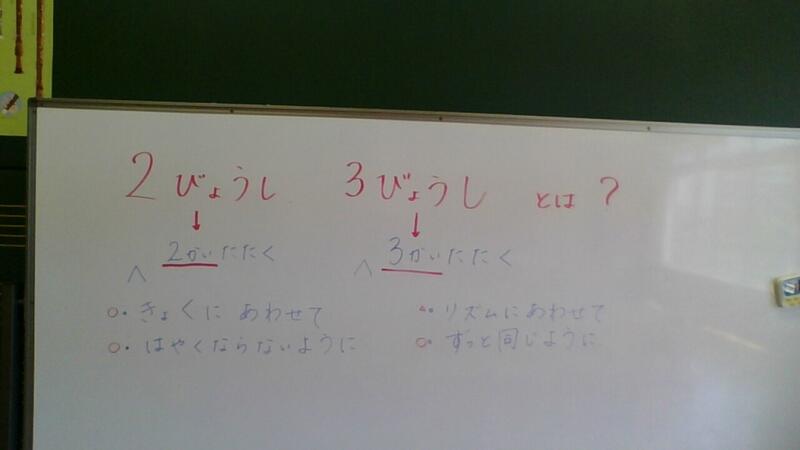 2びょうし 3びょうし とは?
↓ ↓
2かいたたく 3かいたたく
○・きょくにあわせて ・リズムにあわせて
○・はやくならないように ○・ずっと同じように